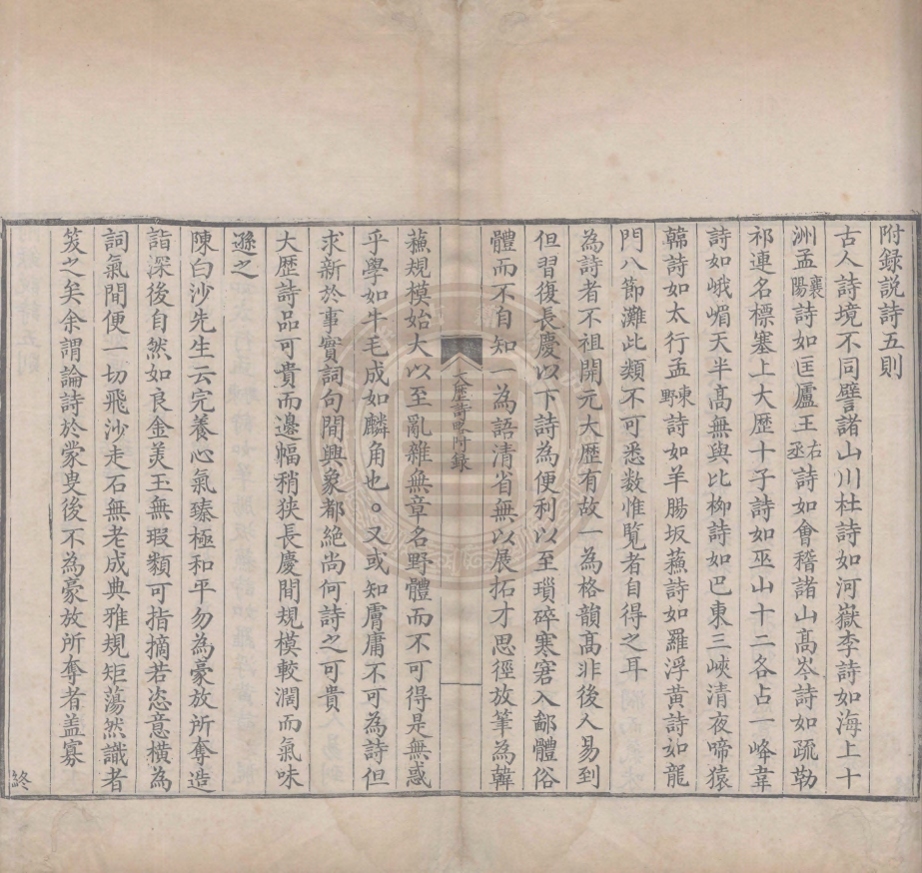 附録説詩五則
古人詩境不同譬諸山川杜詩如河嶽李詩如海上十
洲孟襄陽詩如匡廬王右丞詩如會稽諸山高岑詩如疏勒
祁連名標塞上大歴十子詩如巫山十二各占一峰韋
詩如峨嵋天半高無與比柳詩如巴東三峽清夜啼猿
韓詩如太行孟東野詩如羊腸坂蘇詩如羅浮黃詩如龍
門八節灘此類不可悉數惟覧者自得之耳
為詩者不祖開元大歴有故一為格韻高非後人易到
但習復長慶以下詩為便利以至瑣碎寒窘入鄙體俗
體而不自知一為語清省無以展拓才思徑放筆為韓
大歴詩略附錄
蘇規模始大以至亂雜無章名野體而不可得是無惑
乎學如牛毛成如麟角也。又或知膚庸不可為詩但
求新於事實詞句間興象都絶尚何詩之可貴
大歴詩品可貴而邊幅稍狹長慶間規模較濶而氣味
遜之
陳白沙先生云完養心氣臻極和平勿為豪放所奪造
詣深後自然如良金美玉無瑕纇可指摘若恣意橫為
詞氣間便一切飛沙走石無老成典雅規矩蕩然識者
笑之矣余謂論詩於蒙叟後不為豪放所奪者盖寡
終